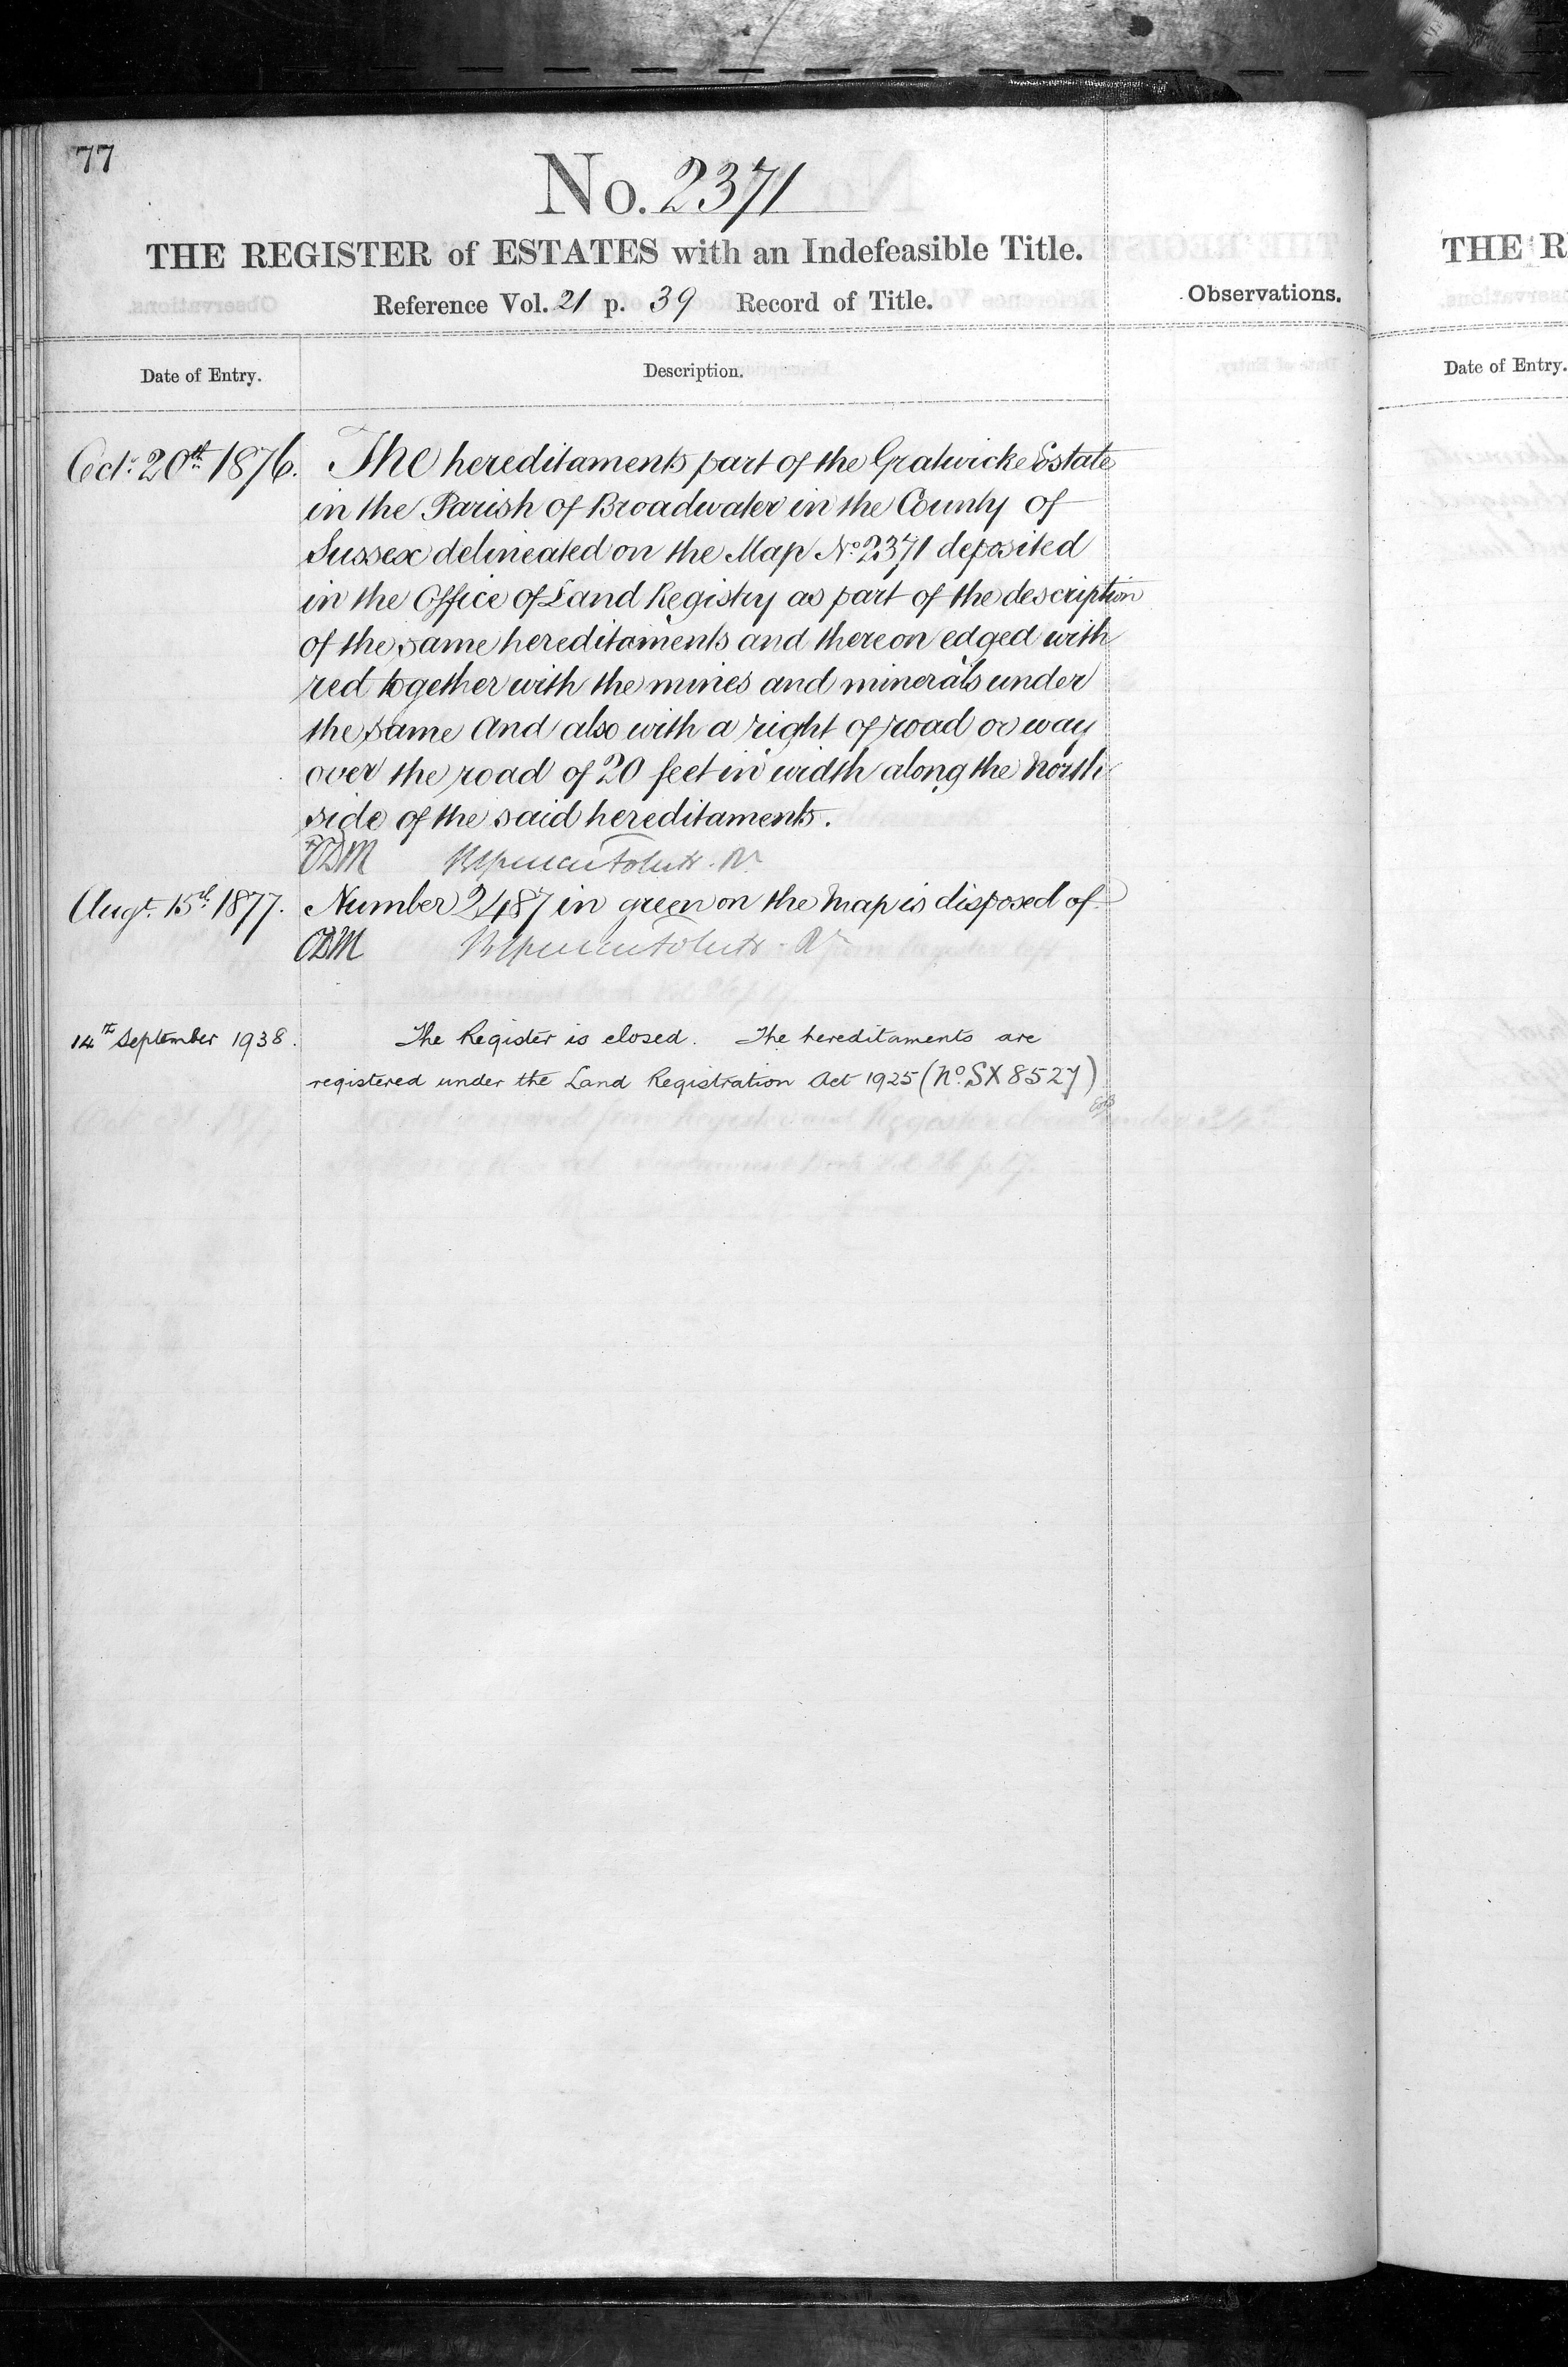 77
No. 2371
THE REGISTER of ESTATES with an Indefeasible Title.
Reference Vol. 21 p. 39 Record of Title.
Observations.
Date of Entry.
Description.
Oct: 20th 1876.
The hereditaments part of the Gratwicke Estate
in the Parish of Broadwater in the County of
Sussex delineated on the Map No 2371 deposited
in the Office of Land Registry as part of the description
of the same hereditaments and thereon edged with
red together with the mines and minerals under
the same And also with a right of road or way
over the road of 20 feet in width along the North
side of the said hereditaments.
Augt. 15th 1877.
Number 2487 in green on the Map is disposed of
14th September 1938.
The Register is closed. The hereditaments are
registered under the Land Registration Act 1925 (No. SX 8527)
THE R
Date of Entry.